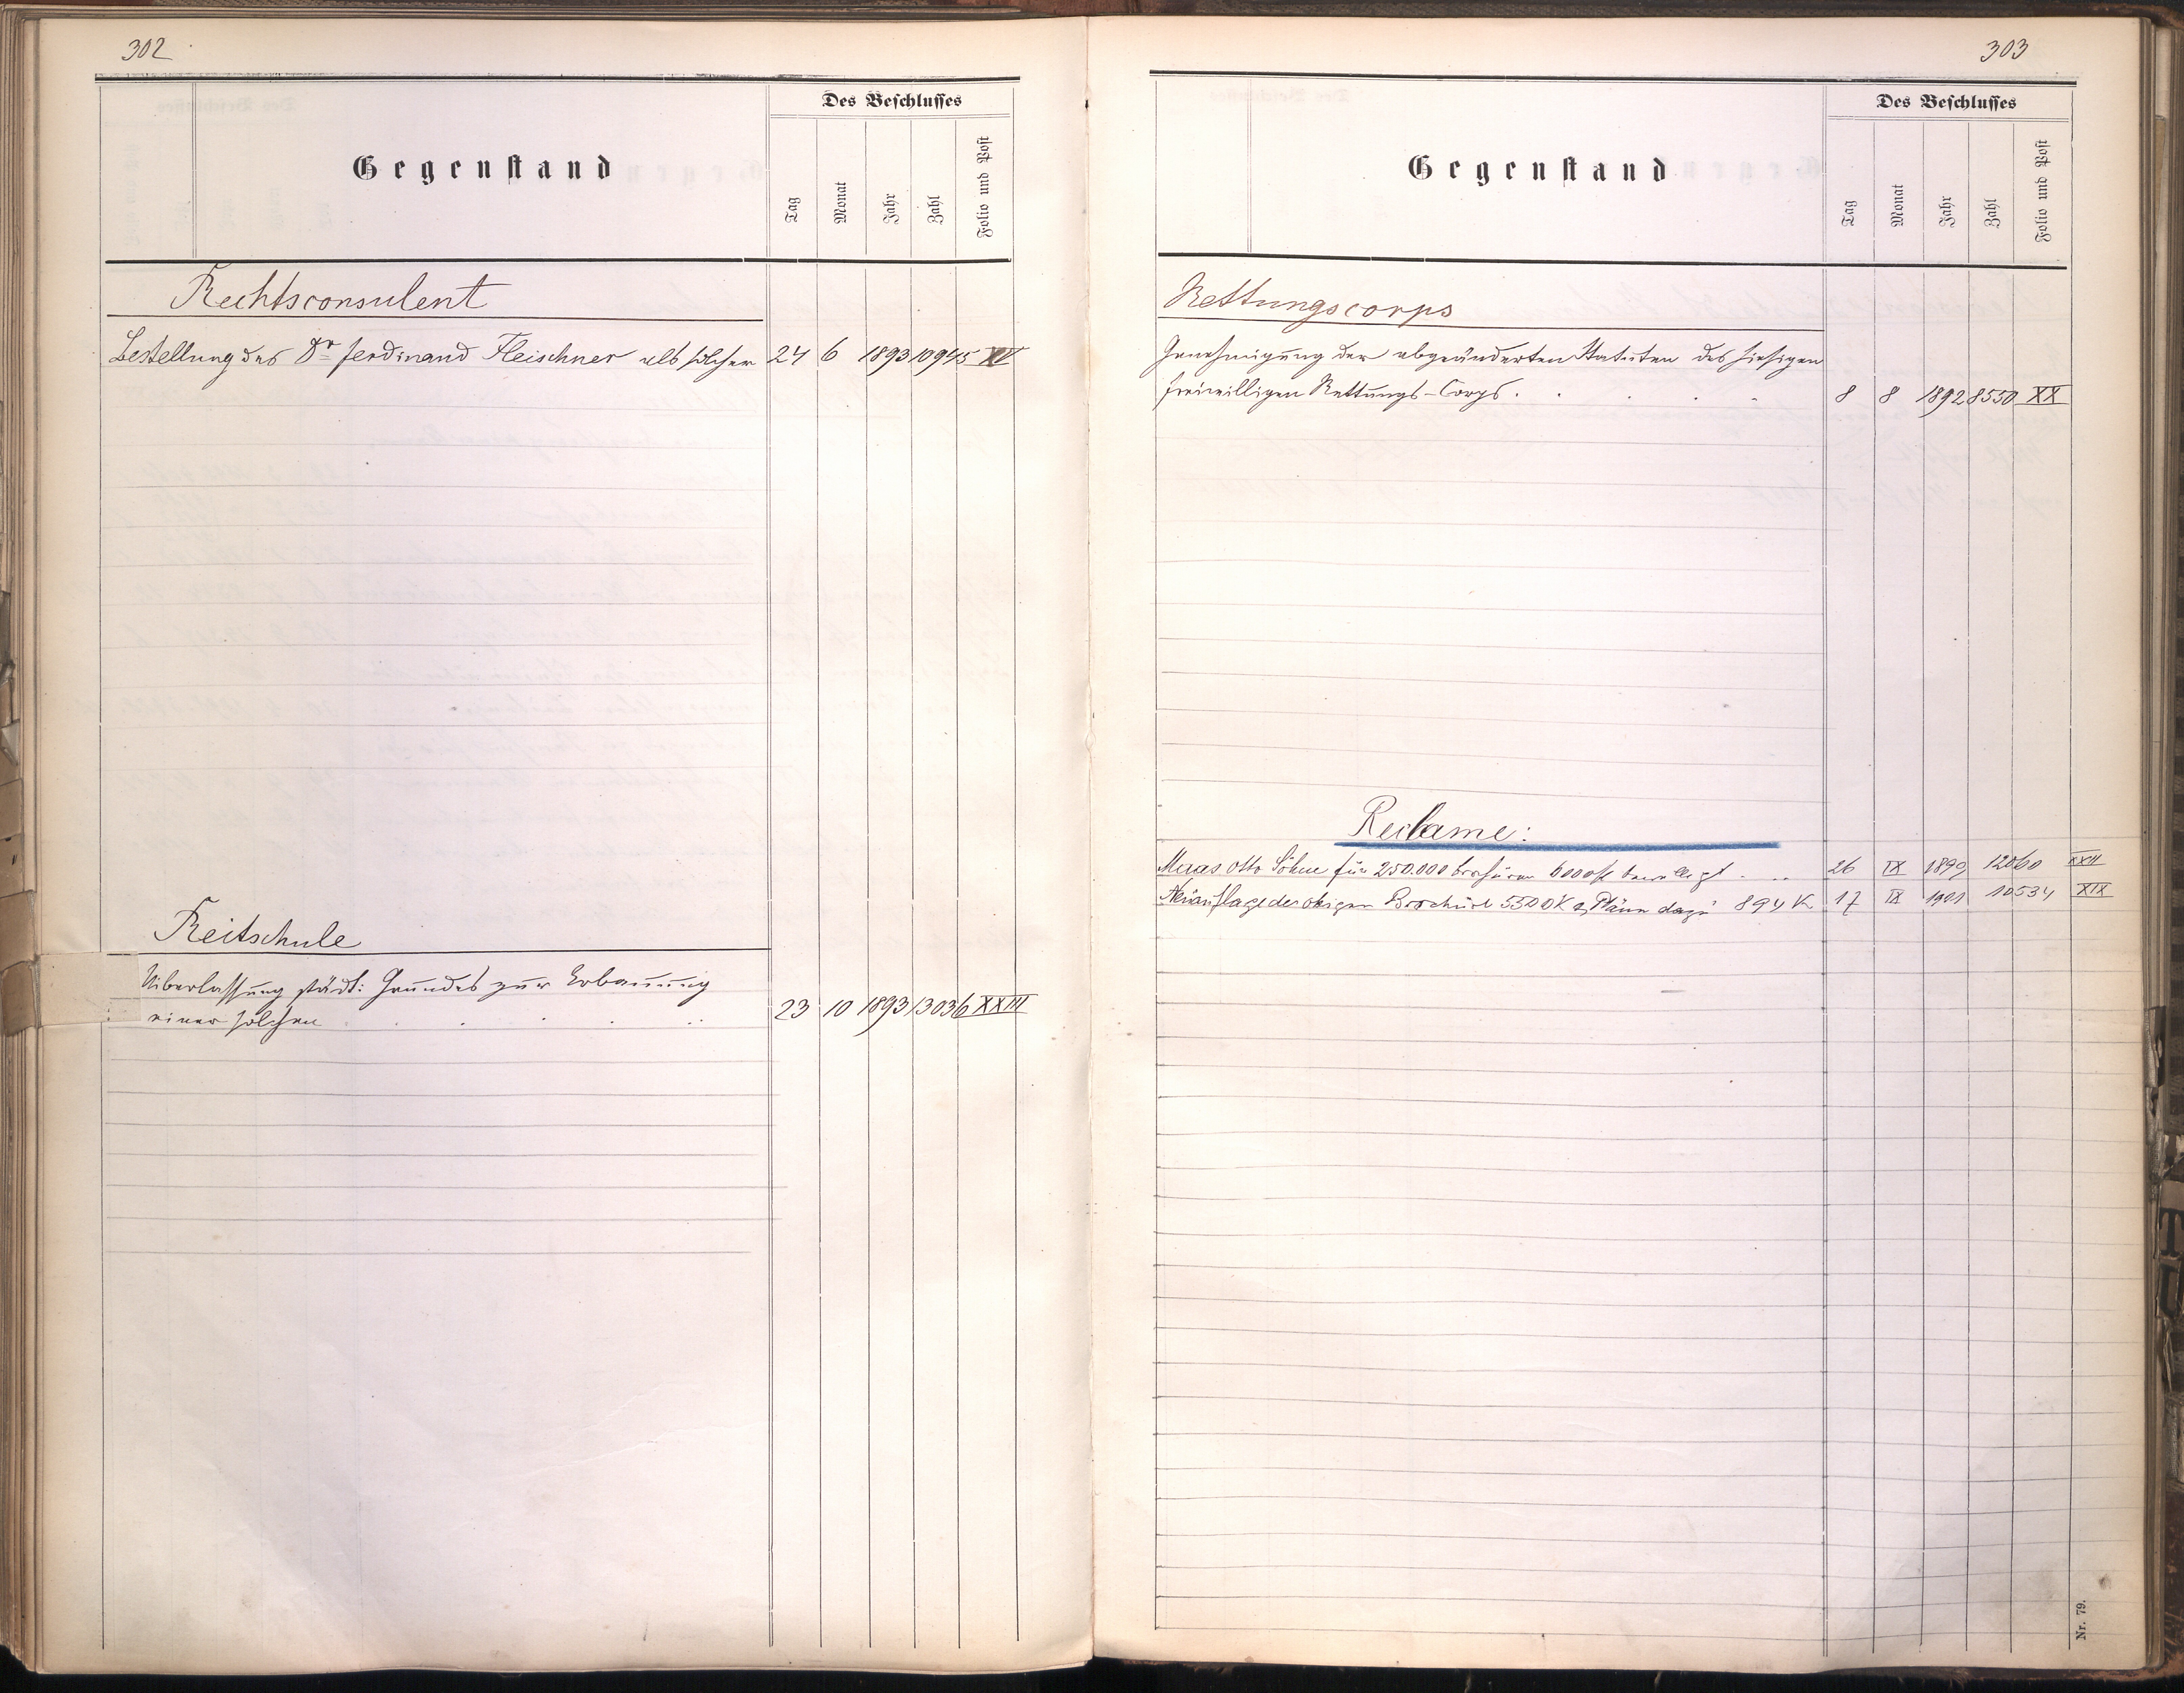 302
Des Beschlusses
Gegenstand
Tag
Monat
Jahr
Zahl
Folio und Post
Rechtsconsulent
Bestellung des Dr Ferdinand Fleischner als solcher 24 6 1893 10945 XV
Reitschule
Uiberlassung städt: Grundes zur Erbauung
einer solchen . . . . . 23 10 1893 13036 XXIII
303
Des Beschlusses
Gegenstand
Tag
Monat
Jahr
Zahl
Folio und Post
Rettungscorps
Genehmigung der abgeänderten Statuten des hiesigen
freiwilligen Rettungs-Corps . . . . . 8 8 1892 8550 XX
Reclame:
Maas Otto Söhne für 250.000 Broschüren 6000 fl bewilligt . .. 26 IX 1899 12060 XXII
Neuauflage der obigen Brochüre 5500 K & Pläne dazu 894 K 17 IX 1901 10534 XIX
Nr. 79.